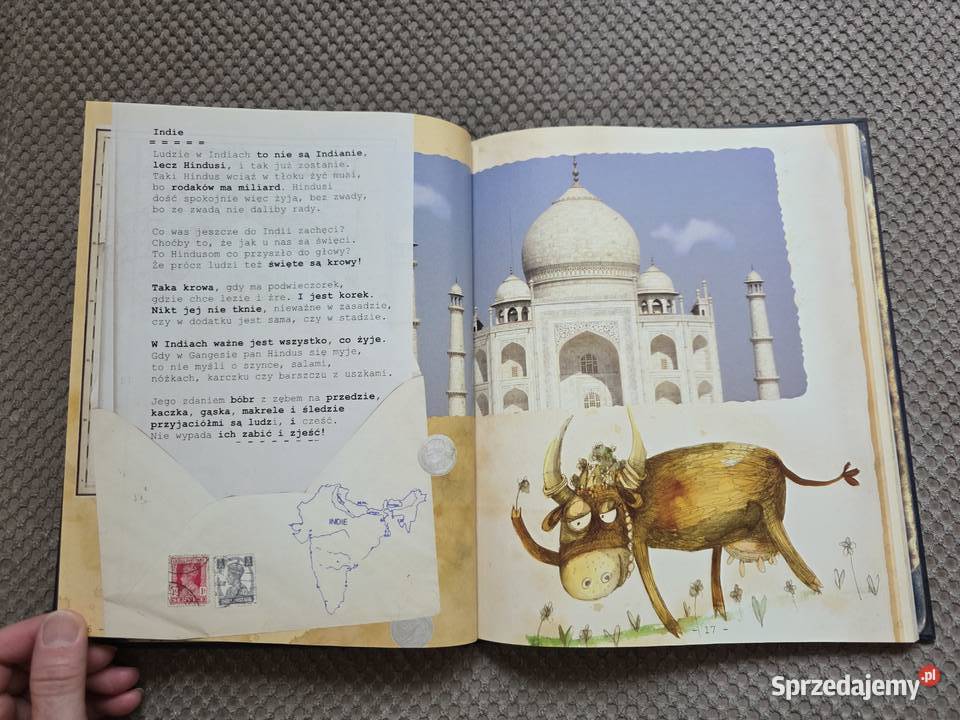 Indie
=====
Ludzie w Indiach to nie są Indianie,
lecz Hindusi, i tak już zostanie.
Taki Hindus wciąż w tłoku żyć musi,
bo rodaków ma miliard. Hindusi
dość spokojnie więc żyją, bez zwady,
bo ze zwadą nie daliby rady.
Co was jeszcze do Indii zachęci?
Choćby to, że jak u nas są święci.
To Hindusom co przyszło do głowy?
Że prócz ludzi też święte są krowy!
Taka krowa, gdy ma podwieczorek,
gdzie chce lezie i żre. I jest korek.
Nikt jej nie tknie, nieważne w zasadzie,
czy w dodatku jest sama, czy w stadzie.
W Indiach ważne jest wszystko, co żyje.
Gdy w Gangesie pan Hindus się myje,
to nie myśli o szynce, salami,
nóżkach, karczku czy barszczu z uszkami.
Jego zdaniem bóbr z zębem na przedzie,
kaczka, gąska, makrele i śledzie
przyjaciółmi są ludzi, i cześć.
Nie wypada ich zabić i zjeść!
INDIE
- 17 -
Sprzedajemy.pl